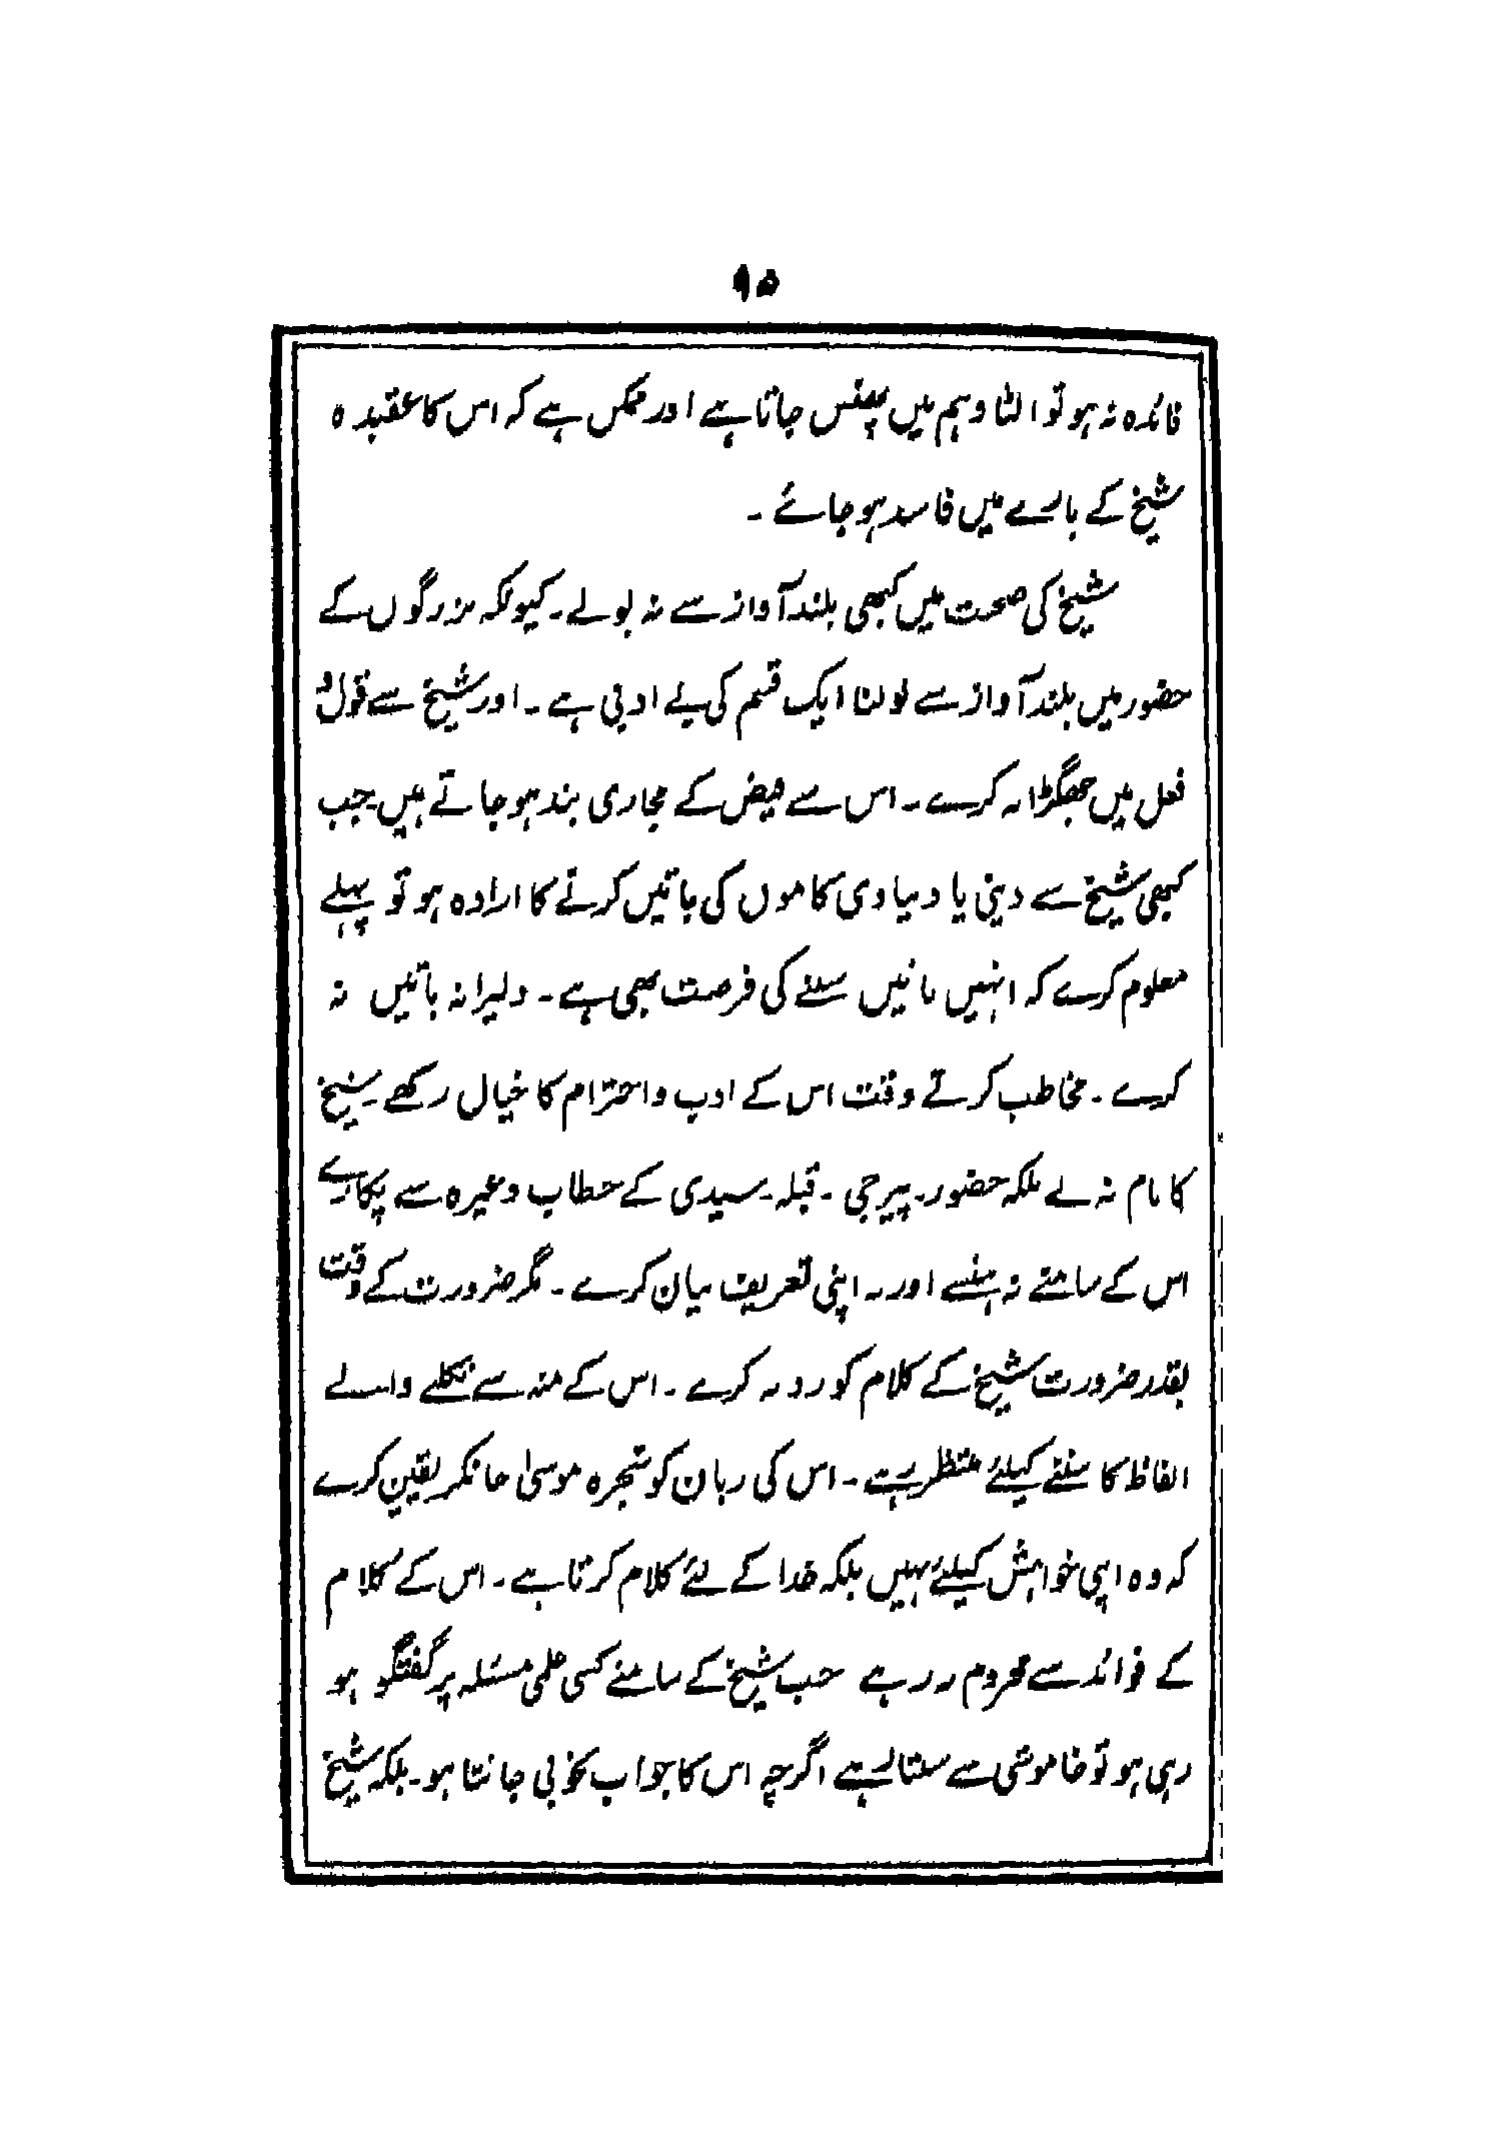 ۹۵
فائدہ نہ ہو تو الٹا وہم میں پھنس جاتا ہے اور ممکن ہے کہ اس کا عقیدہ
شیخ کے بارے میں فاسد ہو جائے ۔
شیخ کی صحبت میں کبھی بلند آواز سے نہ بولے ۔ کیونکہ بزرگوں کے
حضور میں بلند آواز سے بولنا ایک قسم کی بے ادبی ہے ۔ اور شیخ سے قول و
فعل میں جھگڑا نہ کرے ۔ اس سے فیض کے مجاری بند ہو جاتے ہیں ۔ جب
کبھی شیخ سے دینی یا دنیاوی کاموں کی باتیں کرنے کا ارادہ ہو تو پہلے
معلوم کرے کہ انہیں باتیں سننے کی فرصت بھی ہے ۔ دلیرانہ باتیں نہ
کرے ۔ مخاطب کرتے وقت اس کے ادب و احترام کا خیال رکھے ۔ شیخ
کا نام نہ لے بلکہ حضور ۔ پیر جی ۔ قبلہ ۔ سیدی کے خطاب وغیرہ سے پکارے
اس کے سامنے نہ ہنسے اور نہ اپنی تعریف بیان کرے ۔ مگر ضرورت کے وقت
بقدر ضرورت شیخ کے کلام کو رد نہ کرے ۔ اس کے منہ سے نکلنے والے
الفاظ کا سننے کیلئے منتظر رہے ۔ اس کی زبان کو شجرہ موسیٰ جانکر یقین کرے
کہ وہ اپنی خواہش کیلئے نہیں بلکہ خدا کے لئے کلام کرتا ہے ۔ اس کے کلام
کے فوائد سے محروم نہ رہے جب شیخ کے سامنے کسی علمی مسئلہ پر گفتگو ہو
رہی ہو تو خاموشی سے سنتا رہے اگرچہ اس کا جواب بخوبی جانتا ہو ۔ بلکہ شیخ